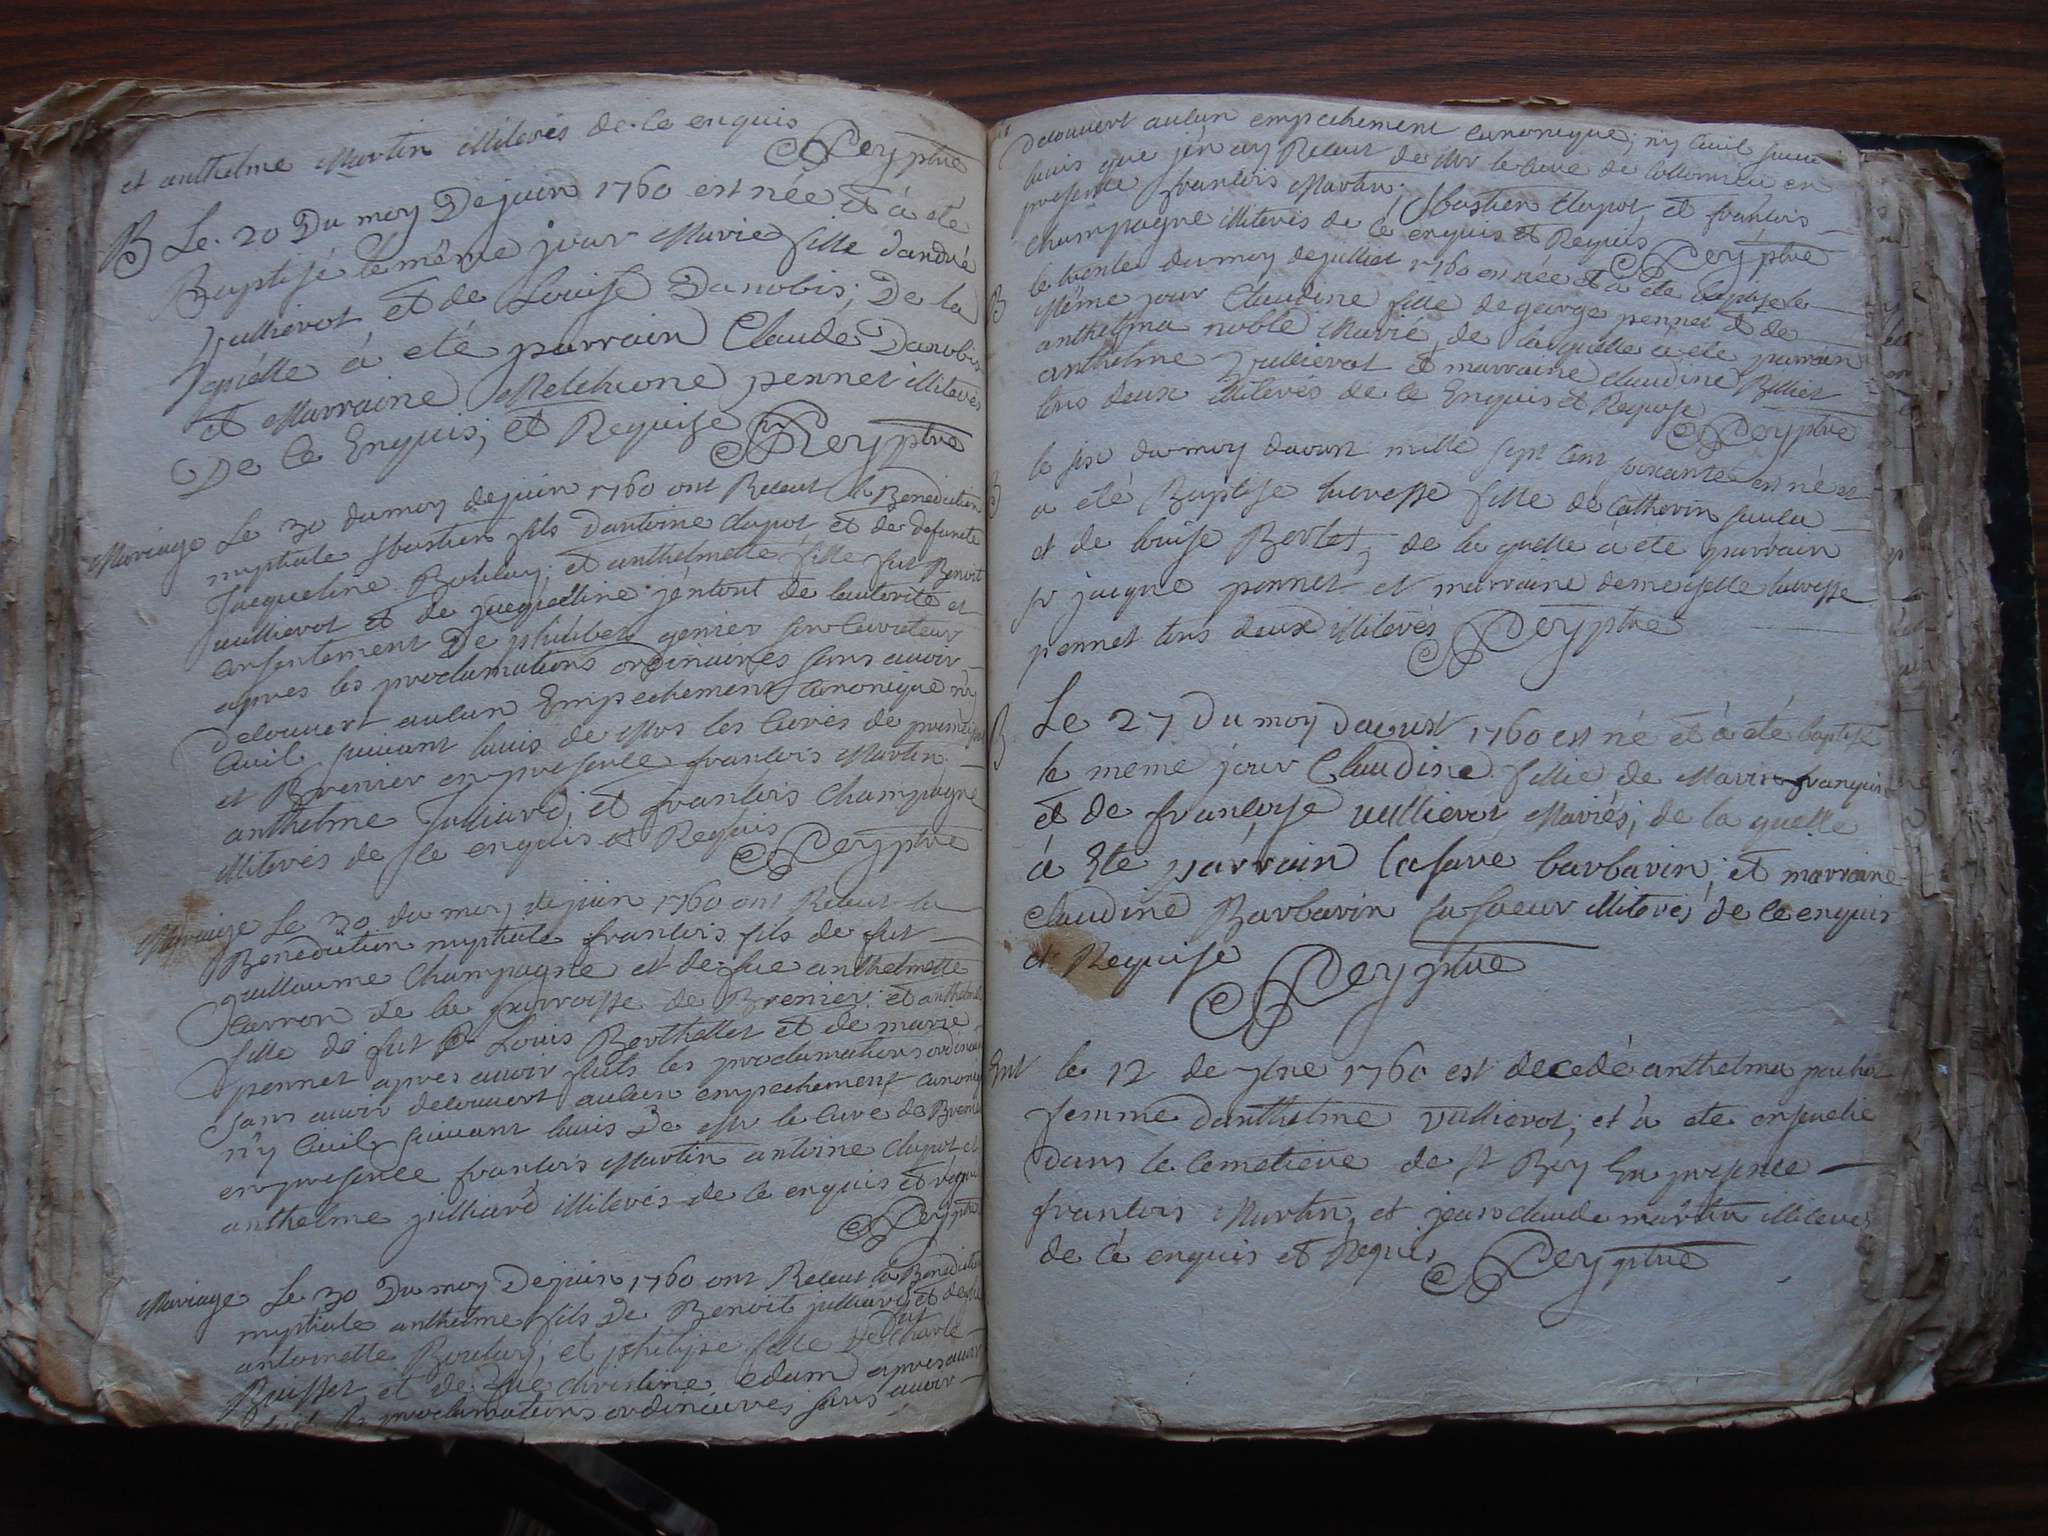 et anthelme Martin illiterés de ce enquis
Rey ptre
B Le 20 Du moy De juin 1760 est née et à eté
Baptisé le même jour Marie fille d'andré
Vullierot et de Louise Danobis; De la
quelle à eté parrain Claude Danobis
et Marraine Melchione pennet illiterés
De ce Enquis, et Requise Rey ptre
Mariage Le 30 du moy de juin 1760 ont Receut la Benediction
nuptiale sbastien fils d'antoine clapot et de defunte
Jacqueline Boulay; et anthelmette fille fut Benoit
vullierot et de jacqueline jentont de lautorité et
consentement De philibert genier son curateur
apres les proclamations ordinaires sans avoir
decouvert aucun Empechement canonique n'y
Civil suivant lavis de Mrs les Curés de
et Brenier en presence francois Martin
anthelme Julliard, et francois Champagne
illiterés de ce enquis et Requis Rey ptre
Mariage Le 30 du moy de juin 1760 ont Receut la
Benediction nuptiale francois fils de fut
guillaume Champagne et de fue anthelmette
Carron de la parroisse de Brenier et anthelme
fille de fut Sr Louis Berthellet et de marie
pennet apres avoir faits les proclamations ordinai
sans avoir decouvert aucun empechement canoniq
n'y Civil suivant lavis De Mr le Curé de Brenie
en presence francois Martin antoine clapot et
anthelme julliard illiterés de ce enquis et requi
Rey ptre
Mariage Le 30 Du moy De juin 1760 ont Receut la Benediction
nuptiale anthelme fils De Benoit julliard et de
fut
antoinette Boulay; et philipe fille de Charle
Buisset et de fue christine adam apres avoir
fait les proclamations ordinaires sans avoir
Decouvert aucun empechement canonique, n'y Civil suiv
lavis que j'en ay Receut de Mr le Cure de Collomieu en
presence francois Martin; Sbastien Clapot, et francois
Champagne illiterés de ce enquis et Requis Rey ptre
B le trente du moy de julliet 1760 est née et à eté baptisé le
Même jour Claudine fille de george pennet et de
anthelma noble Marié, de la quelle à eté parrain
anthelme Vullierot et marraine claudine Billiet
tous deux illiterés de ce Enquis et Requise
Rey ptre
B le six du moy daoust mille sept cent soixante est né et
a eté Baptisé lucresse fille de Catherin
et de louise Berlet, de la quelle à eté parrain
sr jacque pennet et marraine demeiselle lucresse
pennet tous deux illiterés Rey ptre
B Le 27 Du moy daoust 1760 est né et à eté baptisé
le meme jour Claudine fillie de Marin françois
et de françoise vullierot Mariés; de la quelle
à Eté parrain Casare barbarin, et marraine
Claudine Barbarin sa soeur illiterés de ce enquis
et Requise Rey ptre
Ent le 12 de 7bre 1760 est decedé anthelma pochet
femme d'anthelme vullierot; et à eté ensevelie
dans le Cemetiere de st Boy En presence
francois Martin, et jean claude martin illiterés
de cé enquis et Requis Rey ptre